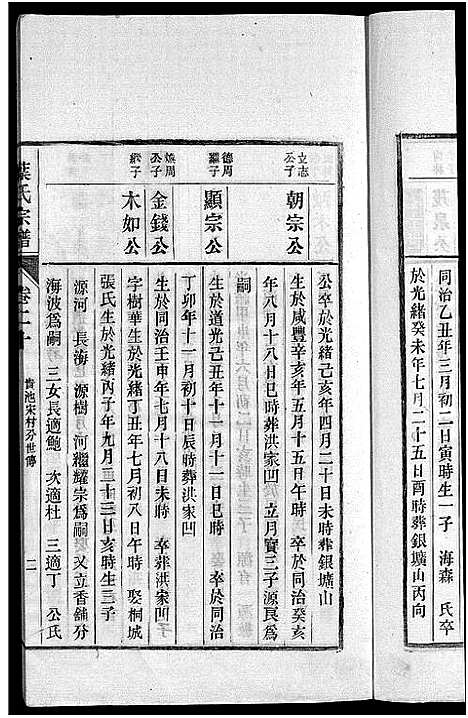 同治乙丑年三月初二日寅時生一子 海森 氏卒
於光緒癸未年七月二十五日酉時葬銀壙山丙向
公卒於光緒己亥年四月二十日未時葬銀壙山
立志公子
朝宗公
生於咸豐辛亥年五月十五日午時 卒於同治癸亥
年八月十八日巳時葬洪家凹 立月寶三子源良爲
嗣
德周繼子
顯宗公
生於道光己丑年十一月十一日巳時 卒於同治
丁卯年十一月初十日辰時葬洪家凹
煥周公子
金錢公
生於同治壬申年七月十八日未時 卒葬洪家凹
繼子
木如公
字樹華生於光緒丁丑年七月初八日午時 娶桐城
張氏生於光緒丙子年九月二十三日亥時生三子
源河 長海 源樹 河繼耀宗爲嗣 又立香舖分
海波爲嗣 三女長適鮑 次適杜 三適丁 公氏
葉氏宗譜
卷二十
貴池宋村分世傳
二